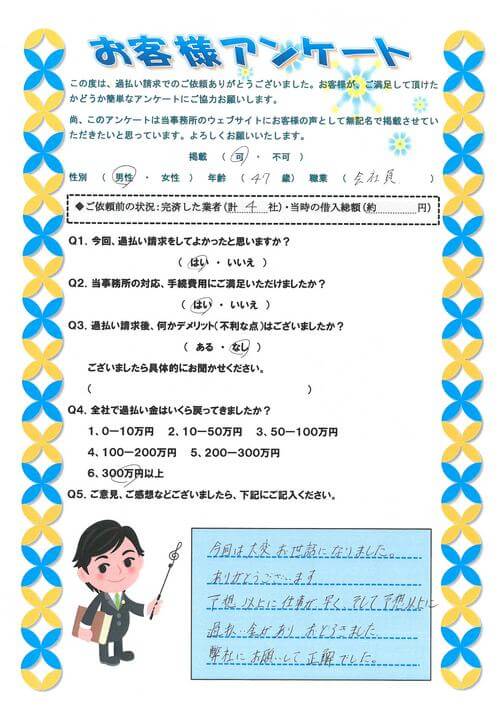 お客様アンケート
この度は、過払い請求でのご依頼ありがとうございました。お客様が、ご満足して頂けた
かどうか簡単なアンケートにご協力お願いします。
尚、このアンケートは当事務所のウェブサイトにお客様の声として無記名で掲載させてい
ただきたいと思っています。よろしくお願いいたします。
掲載 ( 可 ・ 不可 )
性別 ( 男性 ・ 女性 ) 年齢 ( 47 歳) 職業 ( 会社員 )
◆ご依頼前の状況:完済した業者(計 4 社)・当時の借入総額(約 円)
Q1. 今回、過払い請求をしてよかったと思いますか?
( はい ・ いいえ )
Q2. 当事務所の対応、手続費用にご満足いただけましたか?
( はい ・ いいえ )
Q3. 過払い請求後、何かデメリット(不利な点)はございましたか?
( ある ・ なし )
ございましたら具体的にお聞かせください。
( )
Q4. 全社で過払い金はいくら戻ってきましたか?
1、0－10万円 2、10－50万円 3、50－100万円
4、100－200万円 5、200－300万円
6、300万円以上
Q5. ご意見、ご感想などございましたら、下記にご記入ください。
今回は大変お世話になりました。
ありがとうございます
予想以上に仕事が早く、そして予想以上に
過払い金があり おどろきました
弊社にお願いして正解でした。